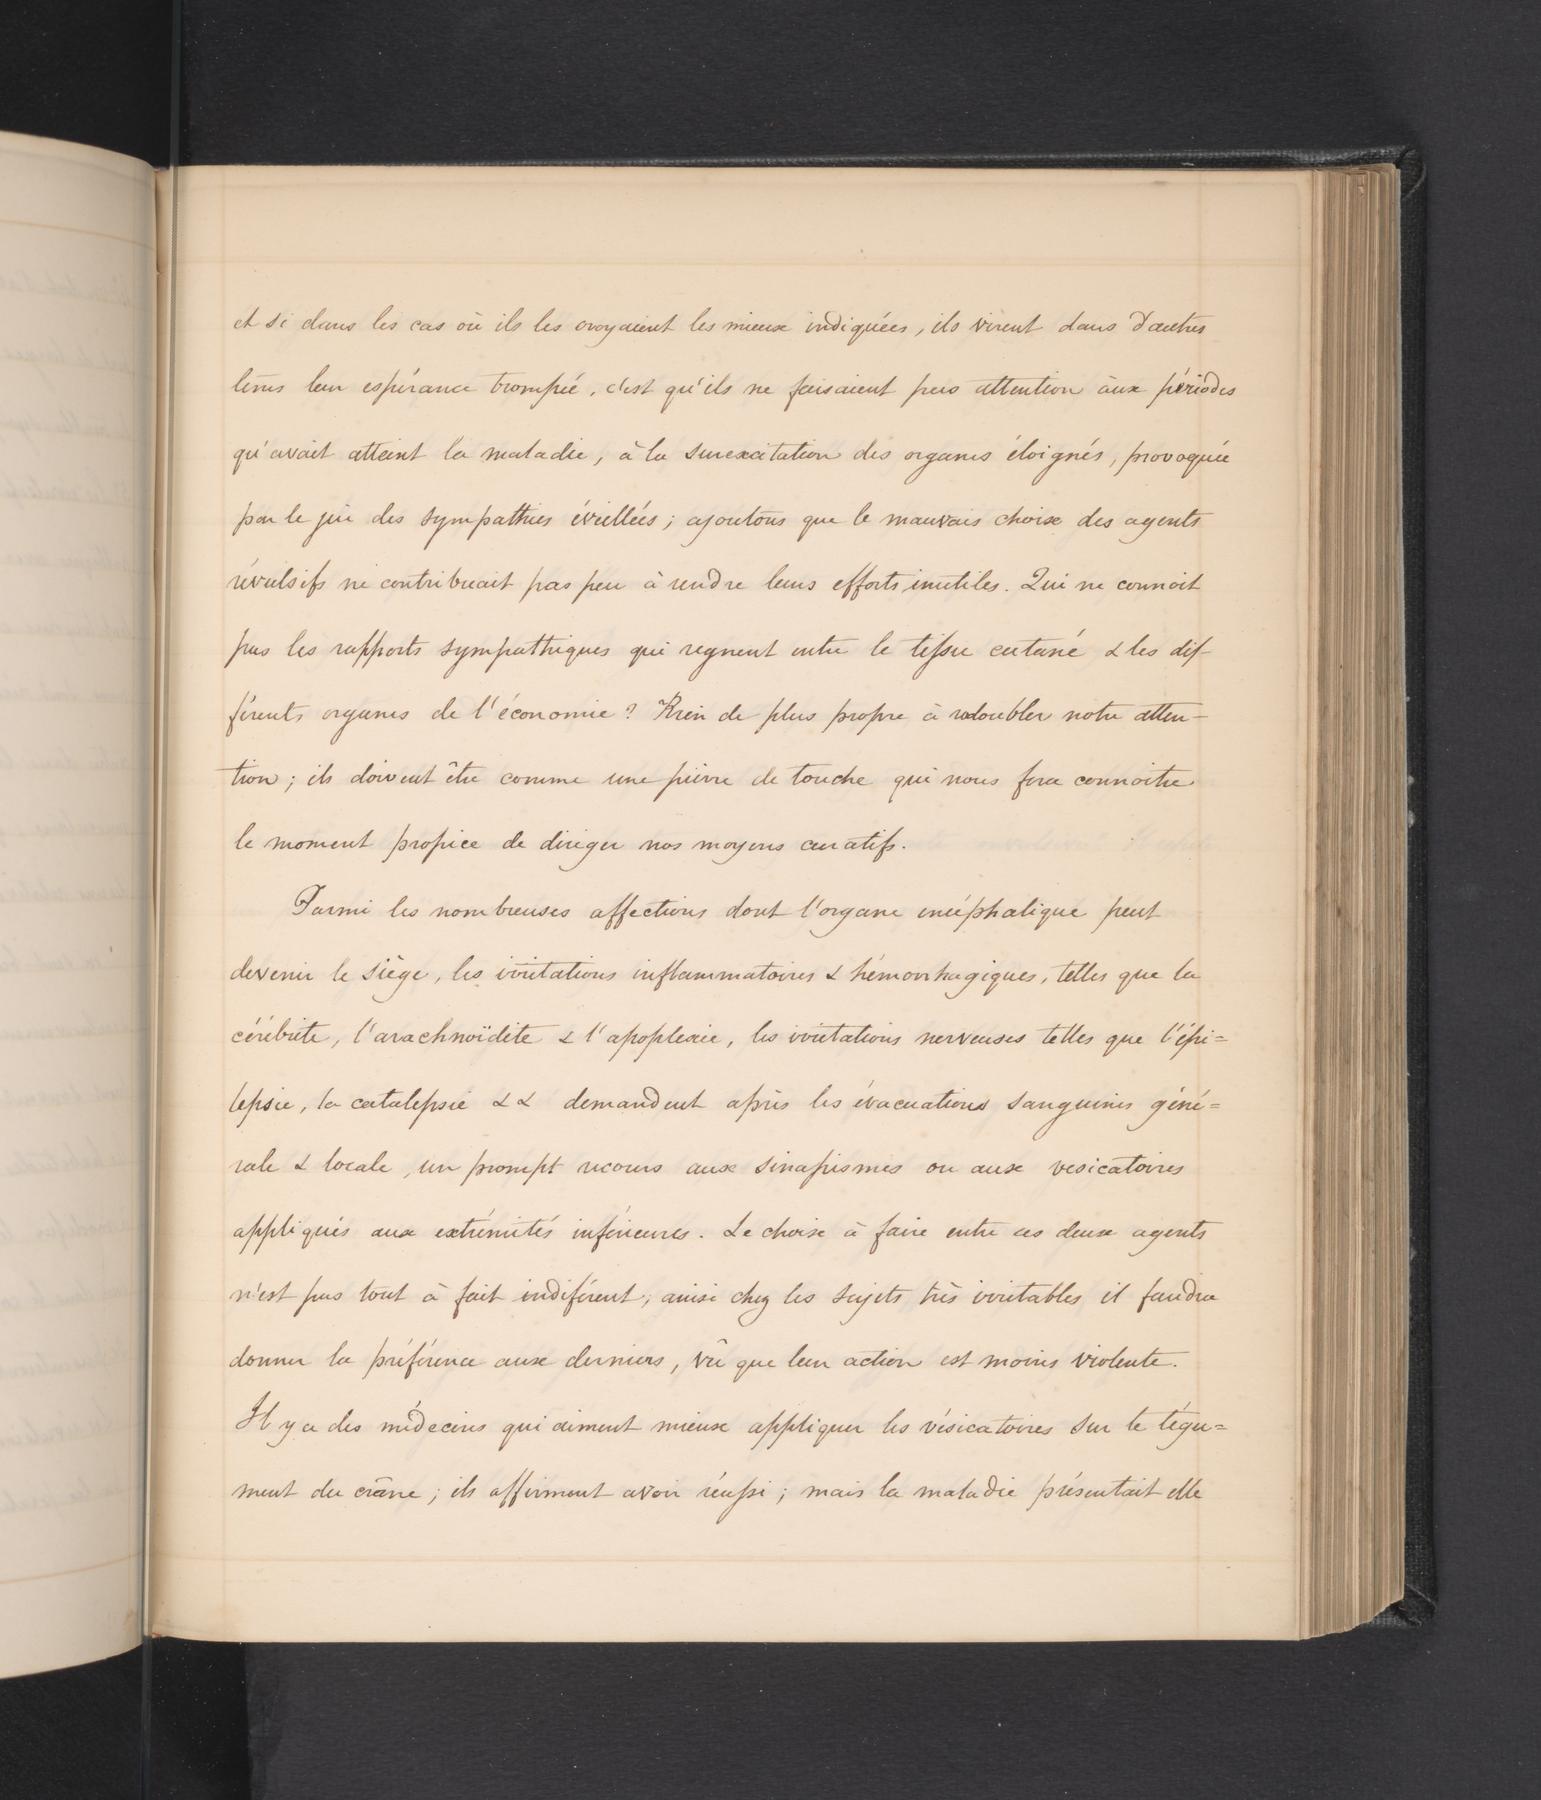 et si dans les cas où ils les croyaient les mieux indiquées, ils virent dans d'autres
tems leur espérance trompée, c'est qu'ils ne faisaient pas attention àux périodes
qu'avait atteint la maladie, à la surexcitation des organes éloignés, provoquée
par le jeu des sympathies éveillées; ajoutons que le mauvais choix des agents
révulsifs ne contribuait pas peu à rendre leurs efforts inutiles. Qui ne connoit
pas les rapports sympathiques qui regnent entre le tissu cutané & les dif-
férents organes de l'économie? Rien de plus propre à redoubler notre atten-
tion; ils doivent être comme une pierre de touche qui nous fera connoitre
le moment propice de diriger nos moyens curatifs.
Parmi les nombreuses affections dont l'organe encéphalique peut
devenir le siège, les irritations inflammatoires & hémorrhagiques, telles que la
cérébrite, l'arachnoïdite & l'apoplexie, les irritations nerveuses telles que l'épi=
lepsie, la catalepsie && demandent après les évacuations sanguines géné=
rale & locale, un prompt recours aux sinapismes ou aux vesicatoires
appliqués aux extrémités inférieures. Le choix à faire entre ces deux agents
n'est pas tout à fait indiférent; ainsi chez les sujets très irritables il faudra
donner la préférence aux derniers, vû que leur action est moins violente.
Il y a des médecins qui aiment mieux appliquer les vésicatoires sur le tégu=
ment du crâne; ils affirment avoir réussi; mais la maladie présentait elle